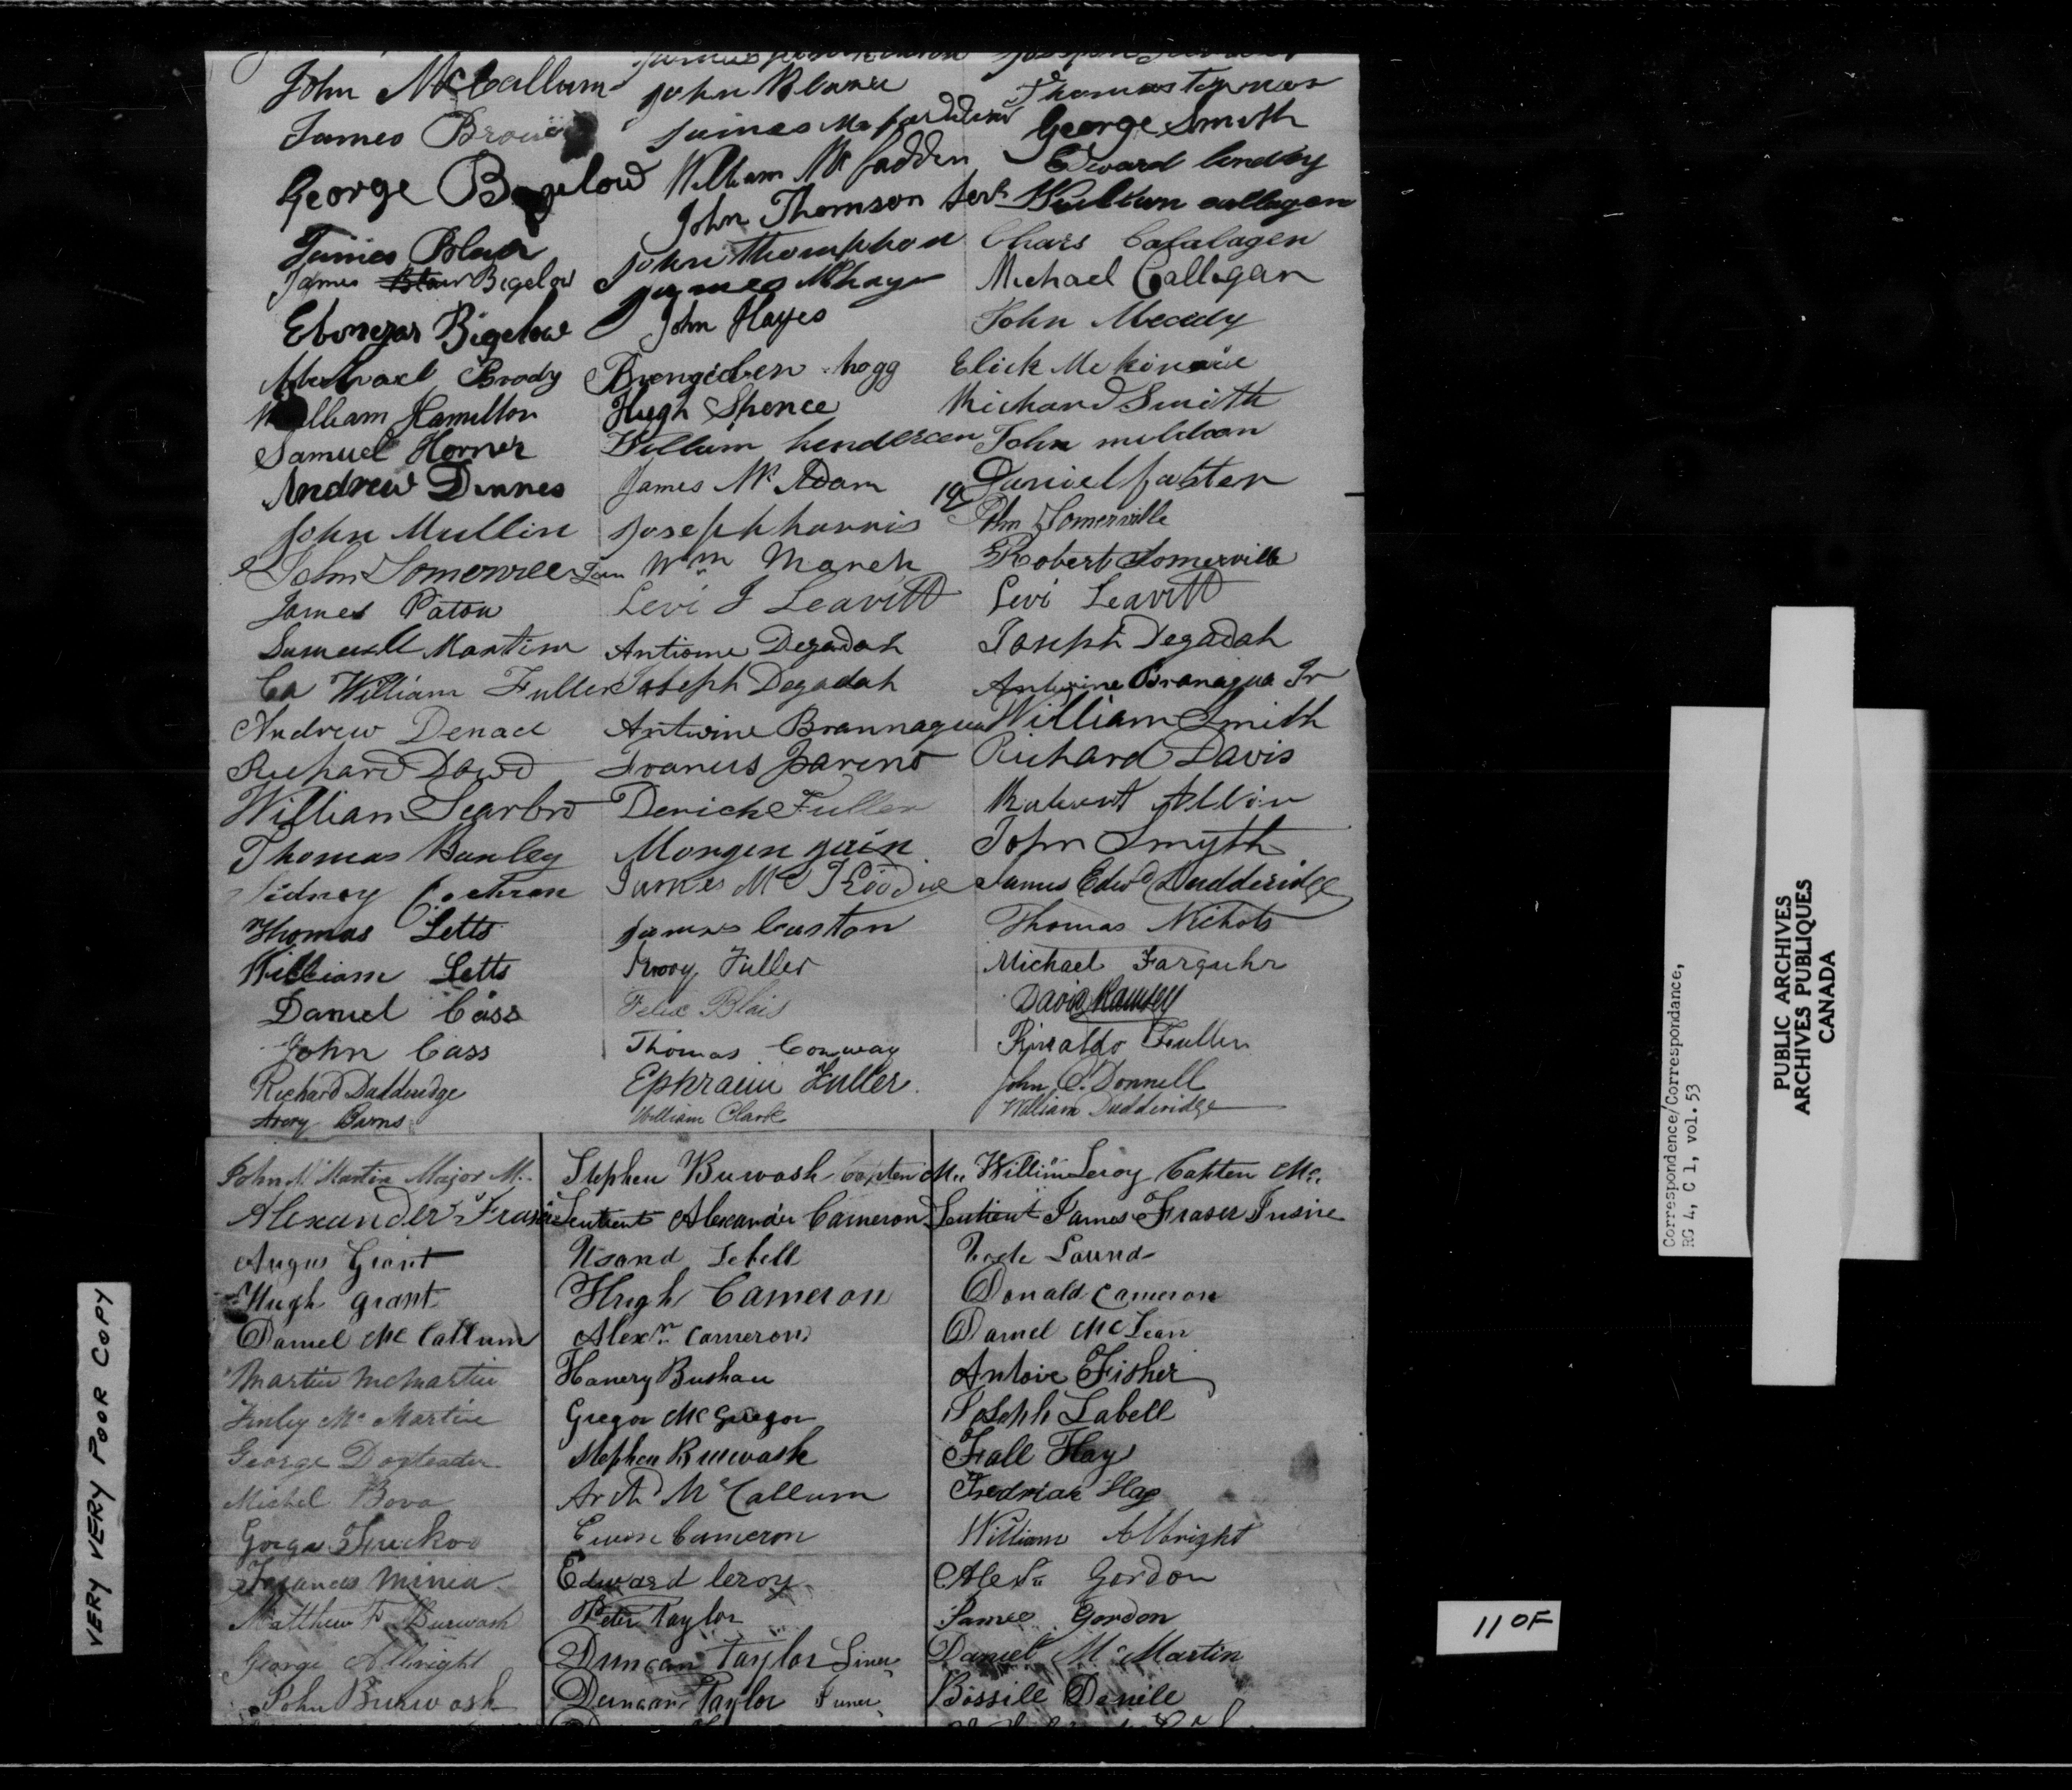 John McCallum
James Brown
George Bigelow
James Blair
James Blair Bigelow
Ebenezar Bigelow
Michael Brody
William Hamilton
Samuel Horner
Andrew Dinnes
John Mullin
John Somerville
James Paton
Samuell Martin
Ca William Fuller
Andrew Denad
Richard Dowd
William Scarbro
Thomas Banley
Sidney Cochran
Thomas Letts
William Letts
Daniel Cass
John Cass
Richard Dudderidge
Avery Barns
John
James
William McFadden
John Thomson
John Thomphon
James Mc
John Hayes
hogg
Hugh Spence
William hendercen
James Mc Adam
Joseph harris
Wm March
Levi J Leavitt
Antione Degadah
Joseph Degadah
Antwine Brannagua
Francis Parent
Derick Fuller
Morgen guin
James Mc
James Caston
Avory Fuller
Felix Blais
Thomas Conway
Ephraim Fuller
William Clark
Thomas
George Smith
Edward lendsy
callagan
Chars Calalagen
Michael Callagan
John
Elick Mc
Richard Smith
John muldoon
19 Daniel foster
John Somerville
Robert Somerville
Levi Leavitt
Joseph Degadah
Antwine Branagua Jr
William Smith
Richard Davis
John Smyth
James Edwd Dudderidge
Thomas Nichols
Michael Farquhr
David Ramsey
Rinaldo Fuller
John O. Donnell
William Dudderidge
John Mc Martin Major M.
Alexander Fraser
Angus Grant
Hugh grant
Daniel Mc Callum
Martin McMartin
Finley Mc Martin
George Dosteater
Michel Bova
Francis Minia
Matthew F Burwash
George Albright
John Burwash
Stephen Burwash Capten
Leutient Alexander Cameron
Lebell
Hugh Cameron
Alexr Cameron
Hanery Bushau
Gregor McGregor
Stephen Burwash
Archd McCallum
Ewen Cameron
Edward leroy
Peter Taylor
Duncan Taylor Siner
Duncan Taylor Juner
William Leroy Capten
Leutient James Fraser
Donald Cameron
Daniel McLean
Antoine Fisher
Joseph Labell
Hay
William Albright
Gordon
James Gordon
Daniel Mc Martin
Bossile Danile
VERY VERY POOR COPY
Correspondence/Correspondance,
RG 4, C 1, vol.53
PUBLIC ARCHIVES
ARCHIVES PUBLIQUES
CANADA
11 OF